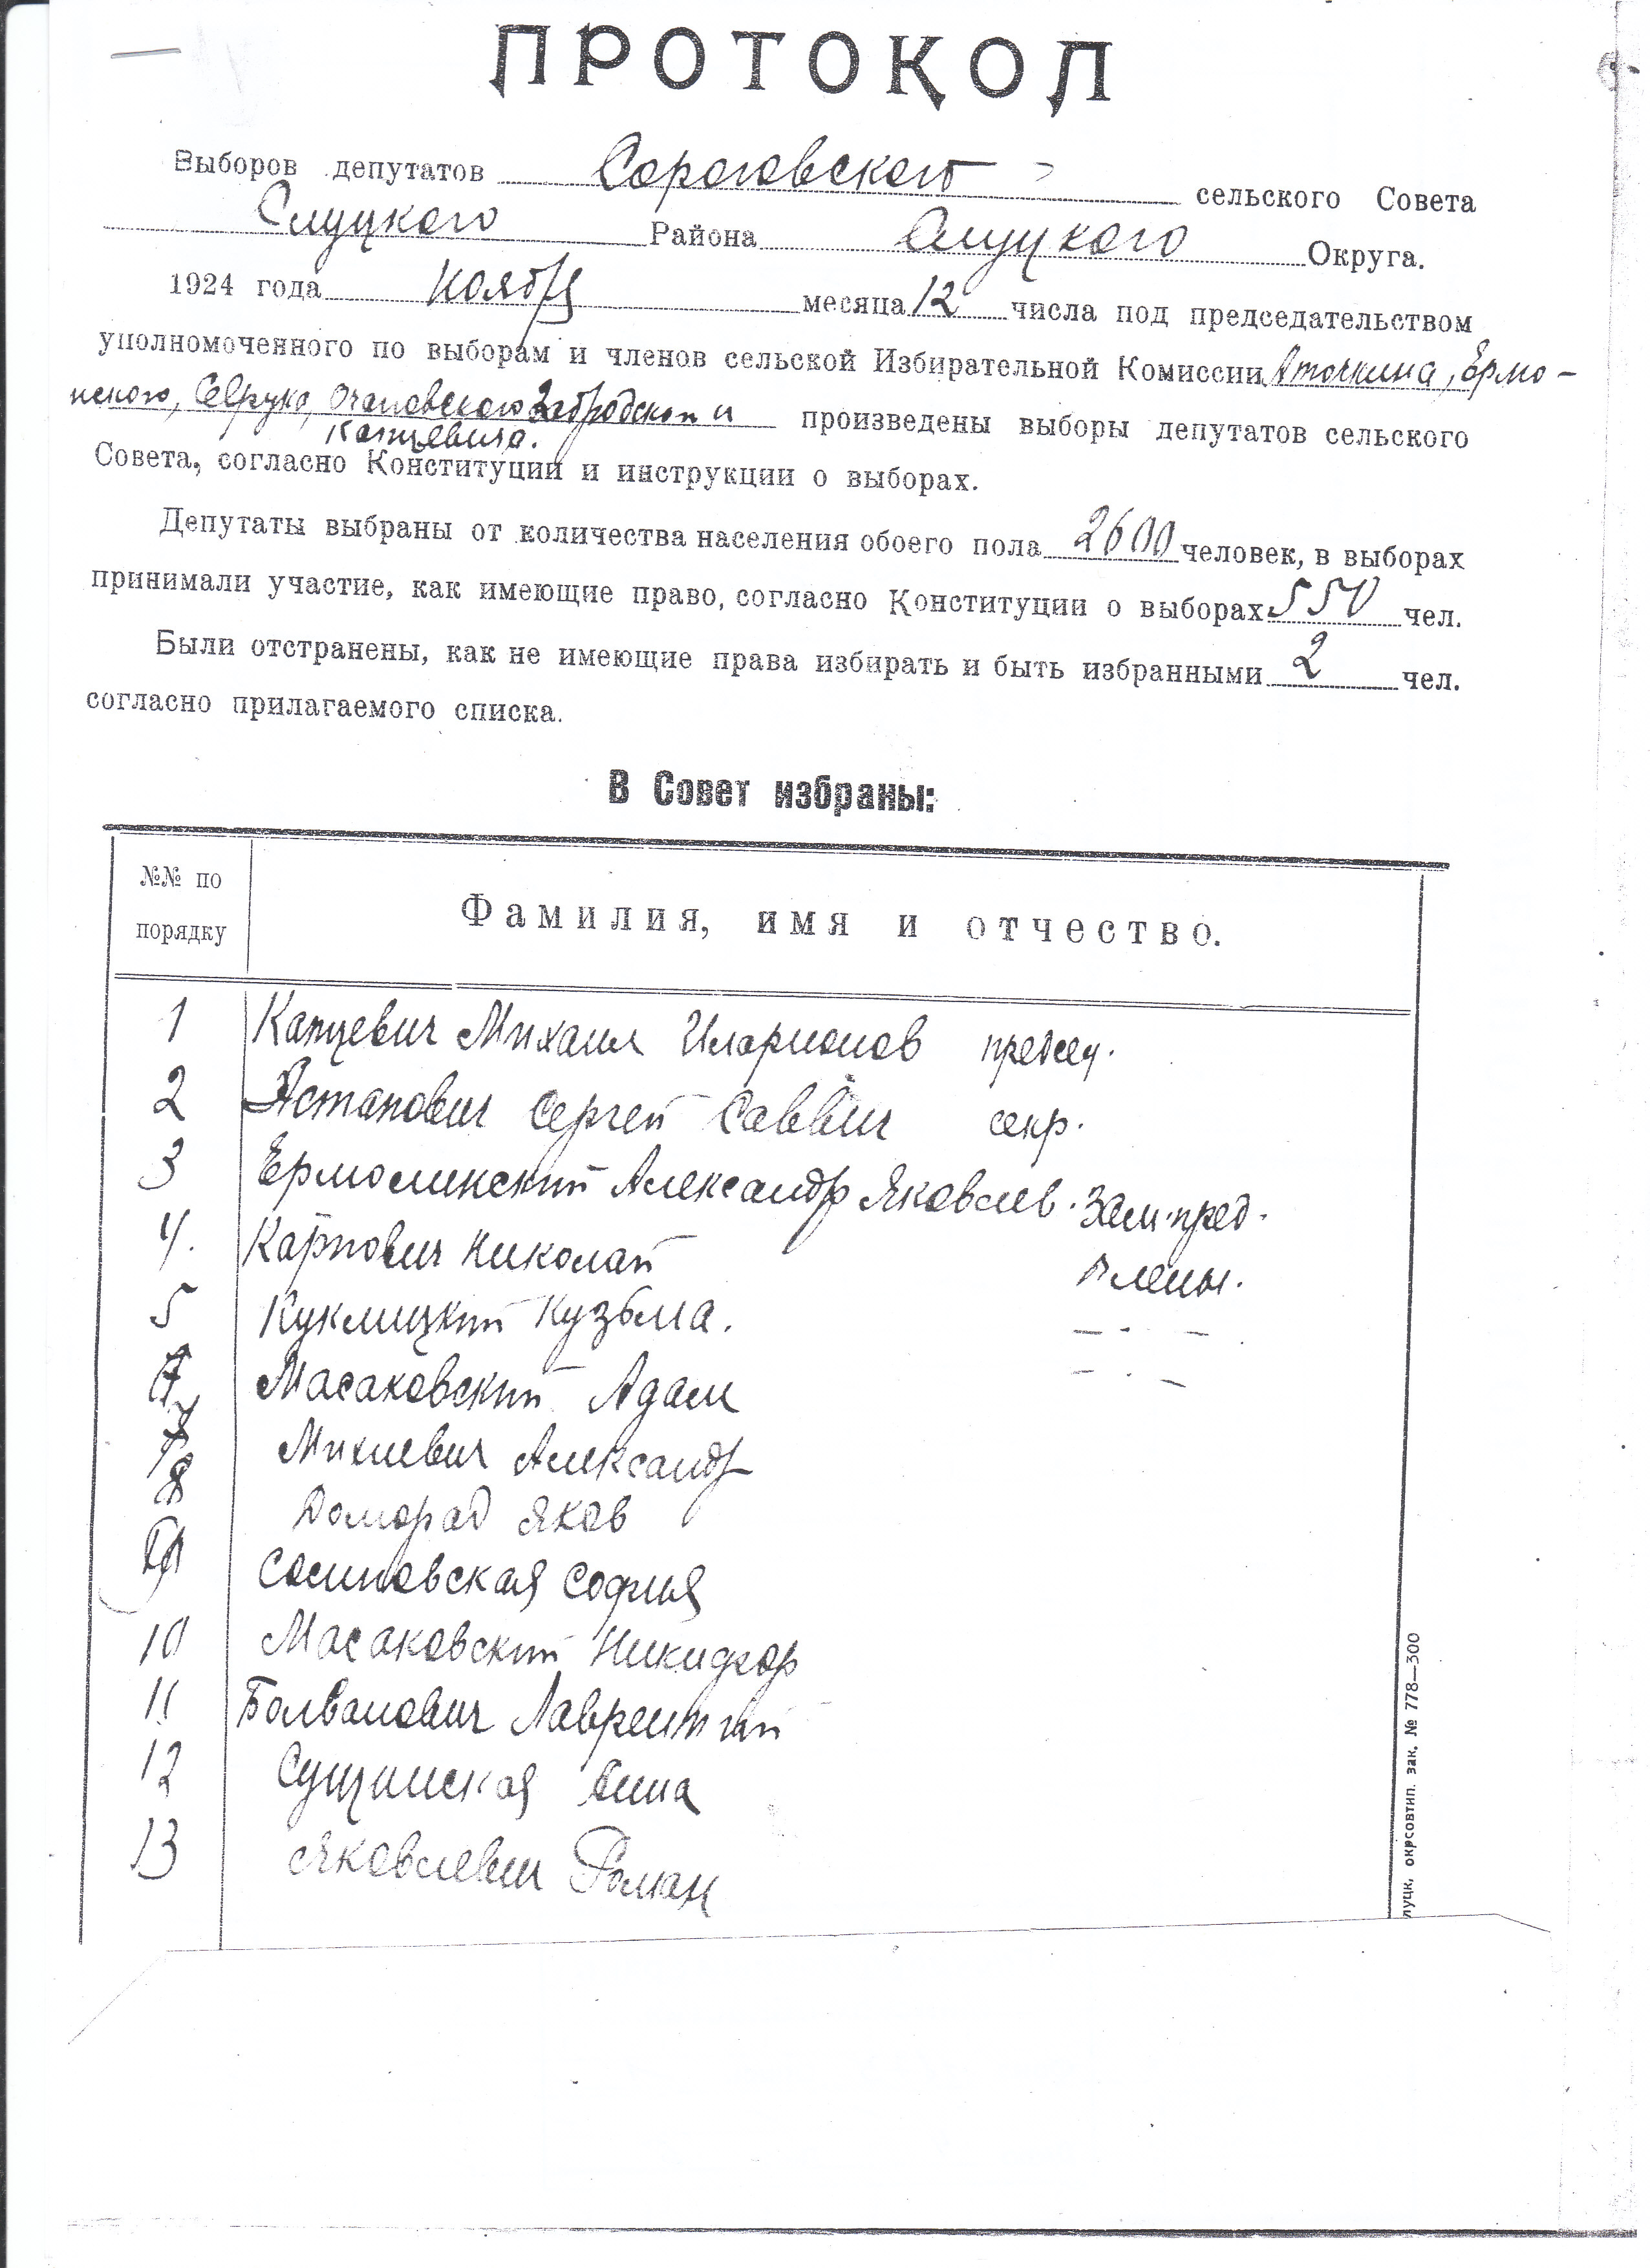 ПРОТОКОЛ
Выборов депутатов Сороговского сельского Совета
Слуцкого Района Слуцкого Округа.
1924 года ноября месяца 12 числа под председательством
уполномоченного по выборам и членов сельской Избирательной Комиссии Аточкина, Ермо-
нского, Севрука, Очаповского Забродского и произведены выборы депутатов сельского
Капцевича.
Совета, согласно Конституции и инструкции о выборах.
Депутаты выбраны от количества населения обоего пола 2600 человек, в выборах
принимали участие, как имеющие право, согласно Конституции о выборах 550 чел.
Были отстранены, как не имеющие права избирать и быть избранными 2 чел.
согласно прилагаемого списка.
В Совет избраны:
№№ по порядку Фамилия, имя и отчество.
1 Капцевич Михаил Иларионов председ.
2 Астапович Сергей Саввич секр.
3 Ермолинский Александр Яковлев. Зам. пред.
4. Карпович Николай члены.
5 Куклицкий Кузьма. — . —
Масаковский Адам — . —
Михневич Александр
8 Доморад Яков
Сосиновская София
10 Масаковский Никифор
11 Болванович Лаврентий
12 Сущинская Анна
13 Яковлевич Роман
луцк, окрсовтип. зак. № 778—300